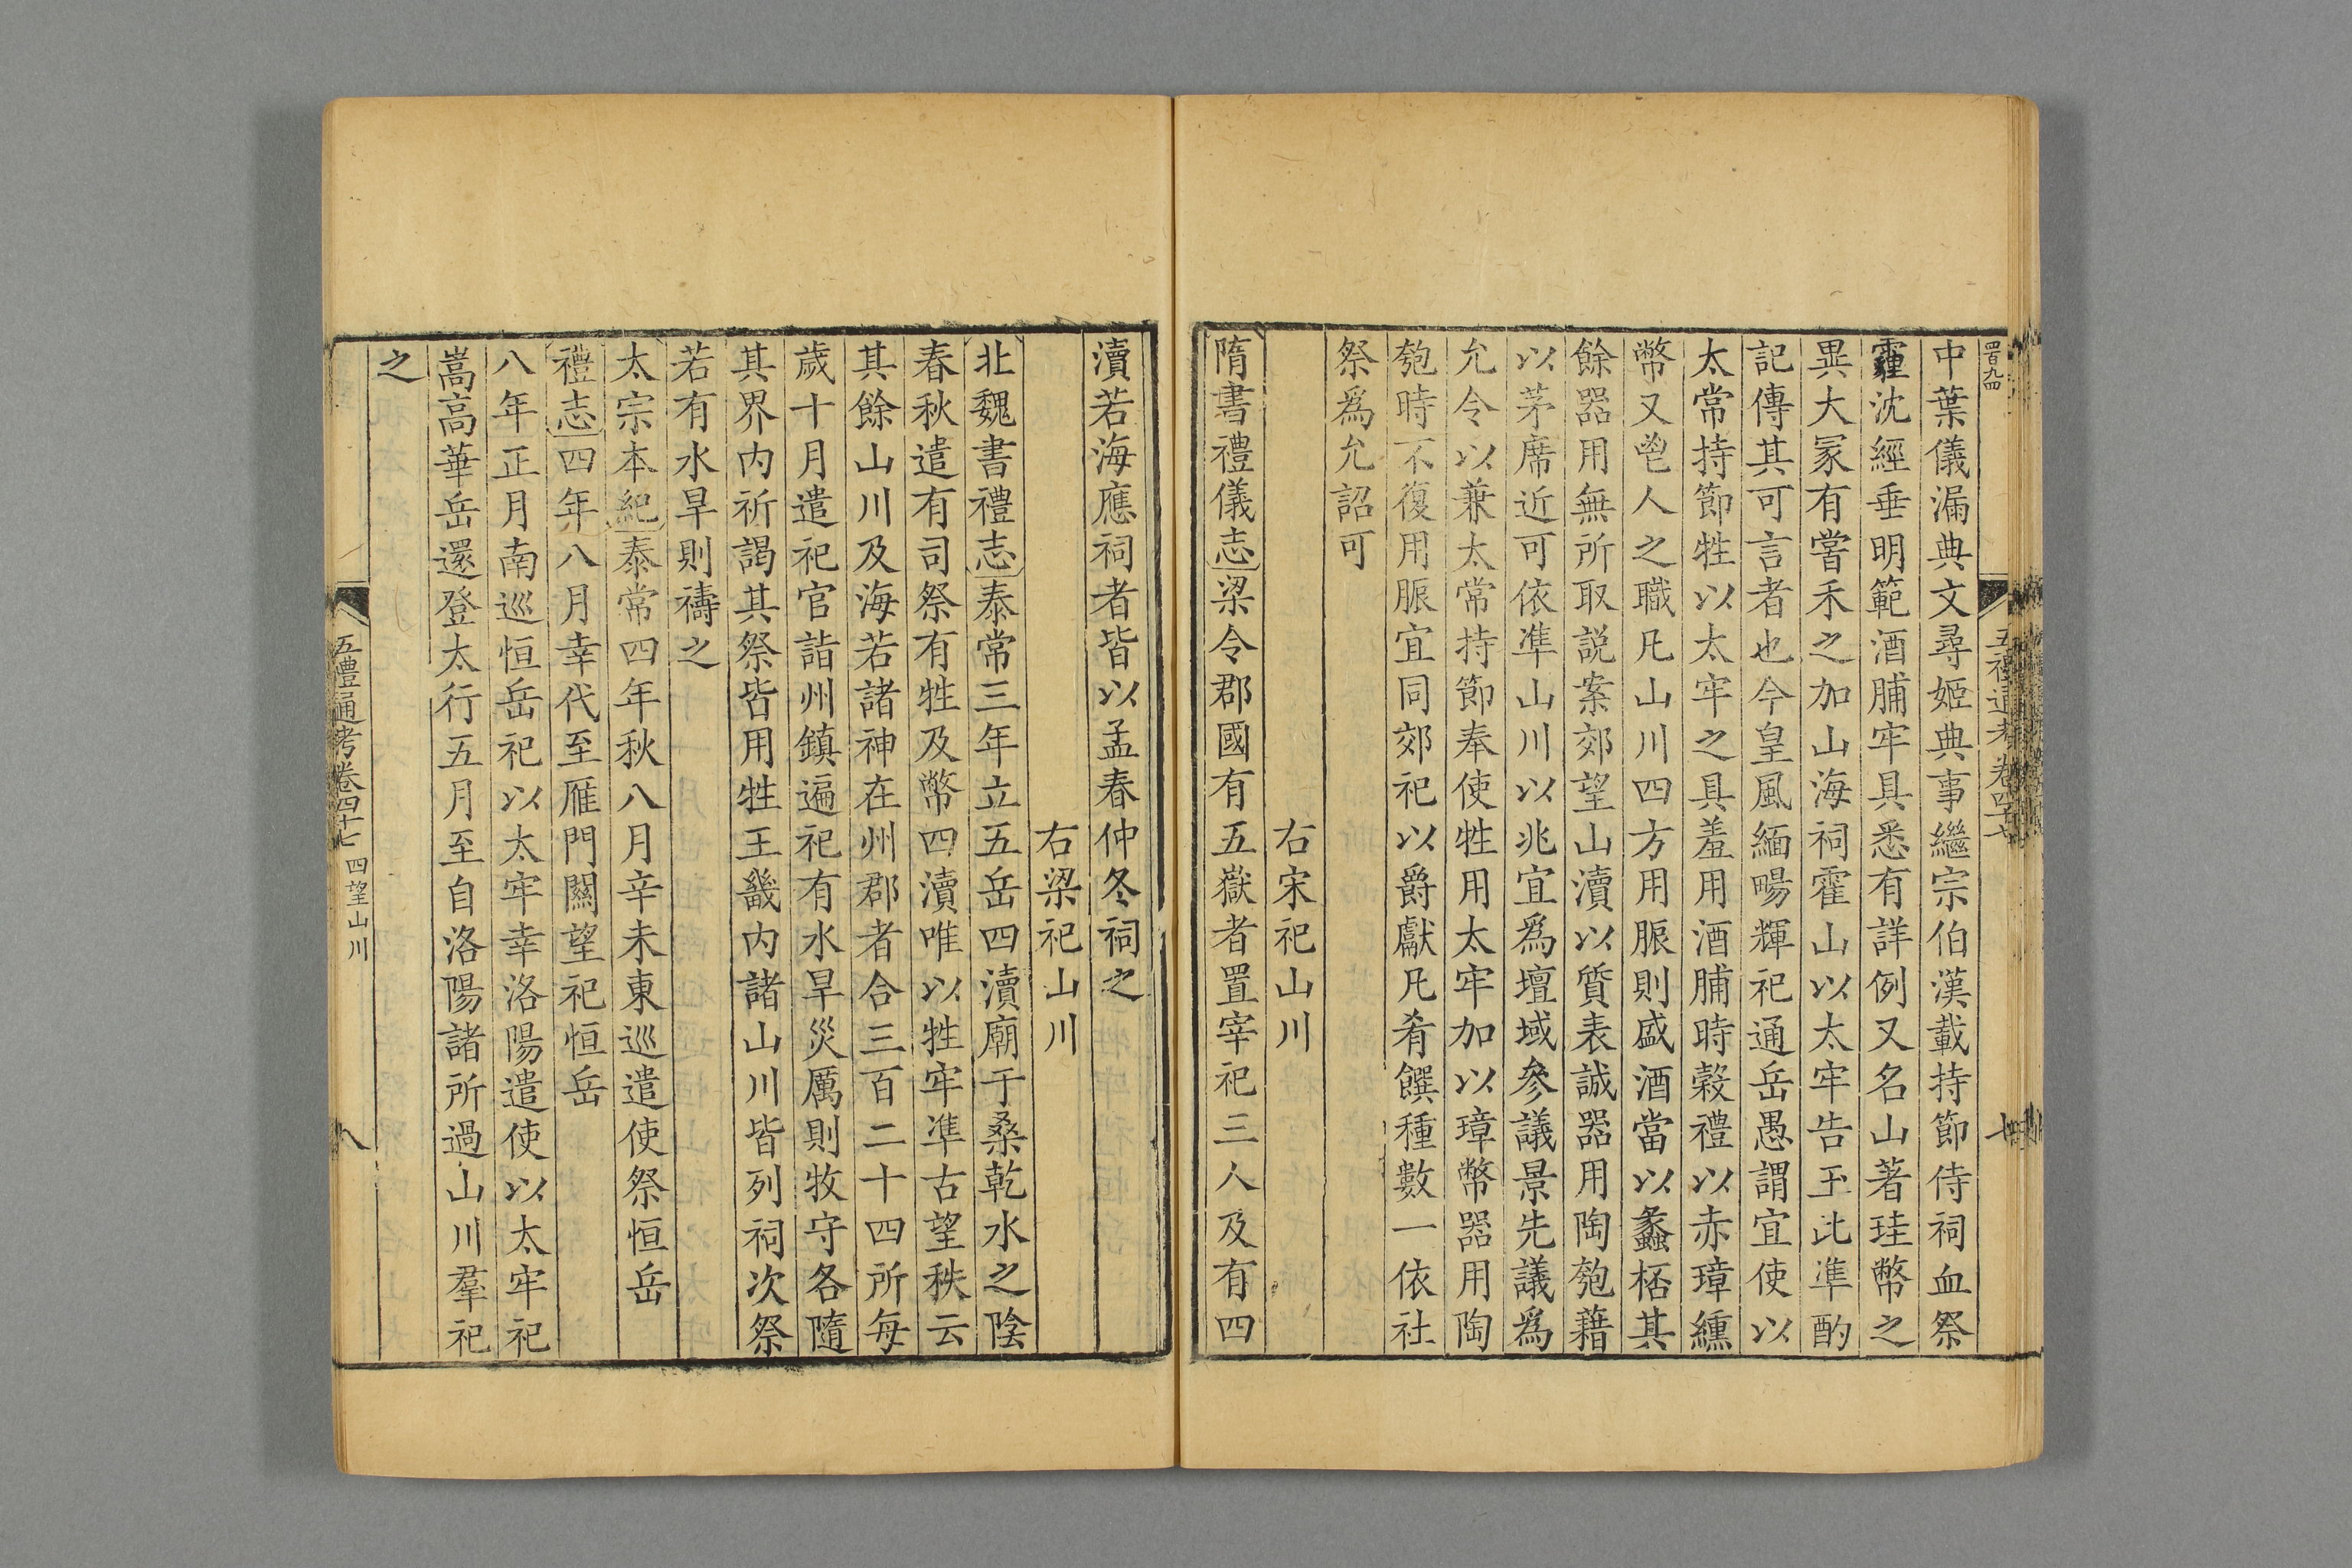 中葉儀漏典文尋姬典事繼宗伯漢載持節侍祠血祭
霾沈經垂明範酒脯牢具悉有詳例又名山著珪幣之
異大冢有嘗禾之加山海祠霍山以太牢告玉此準酌
記傳其可言者也今皇風緬暢輝祀通岳愚謂宜使以
太常持節牲以太牢之具羞用酒脯時穀禮以赤璋纁
幣又鬯人之職凡山川四方用脤則盛酒當以蠡桮其
餘器用無所取説案郊望山瀆以質表誠器用陶匏藉
以茅席近可依準山川以兆宜爲壇域參議景先議爲
允令以兼太常持節奉使牲用太牢加以璋幣器用陶
匏時不復用脤宜同郊祀以爵獻凡肴饌種數一依社
祭爲允詔可
右宋祀山川
隋書禮儀志梁令郡國有五嶽者置宰祀三人及有四
瀆若海應祠者皆以孟春仲冬祠之
右梁祀山川
北魏書禮志泰常三年立五岳四瀆廟于桑乾水之陰
春秋遣有司祭有牲及幣四瀆唯以牲牢準古望秩云
其餘山川及海若諸神在州郡者合三百二十四所每
歲十月遣祀官詣州鎮遍祀有水旱災厲則牧守各隨
其界内祈謁其祭皆用牲王畿内諸山川皆列祠次祭
若有水旱則禱之
太宗本紀泰常四年秋八月辛未東巡遣使祭恒岳
禮志四年八月幸代至雁門關望祀恒岳
八年正月南巡恒岳祀以太牢幸洛陽遣使以太牢祀
嵩高華岳還登太行五月至自洛陽諸所過山川羣祀
之
五禮通考卷四十七 四望山川 八